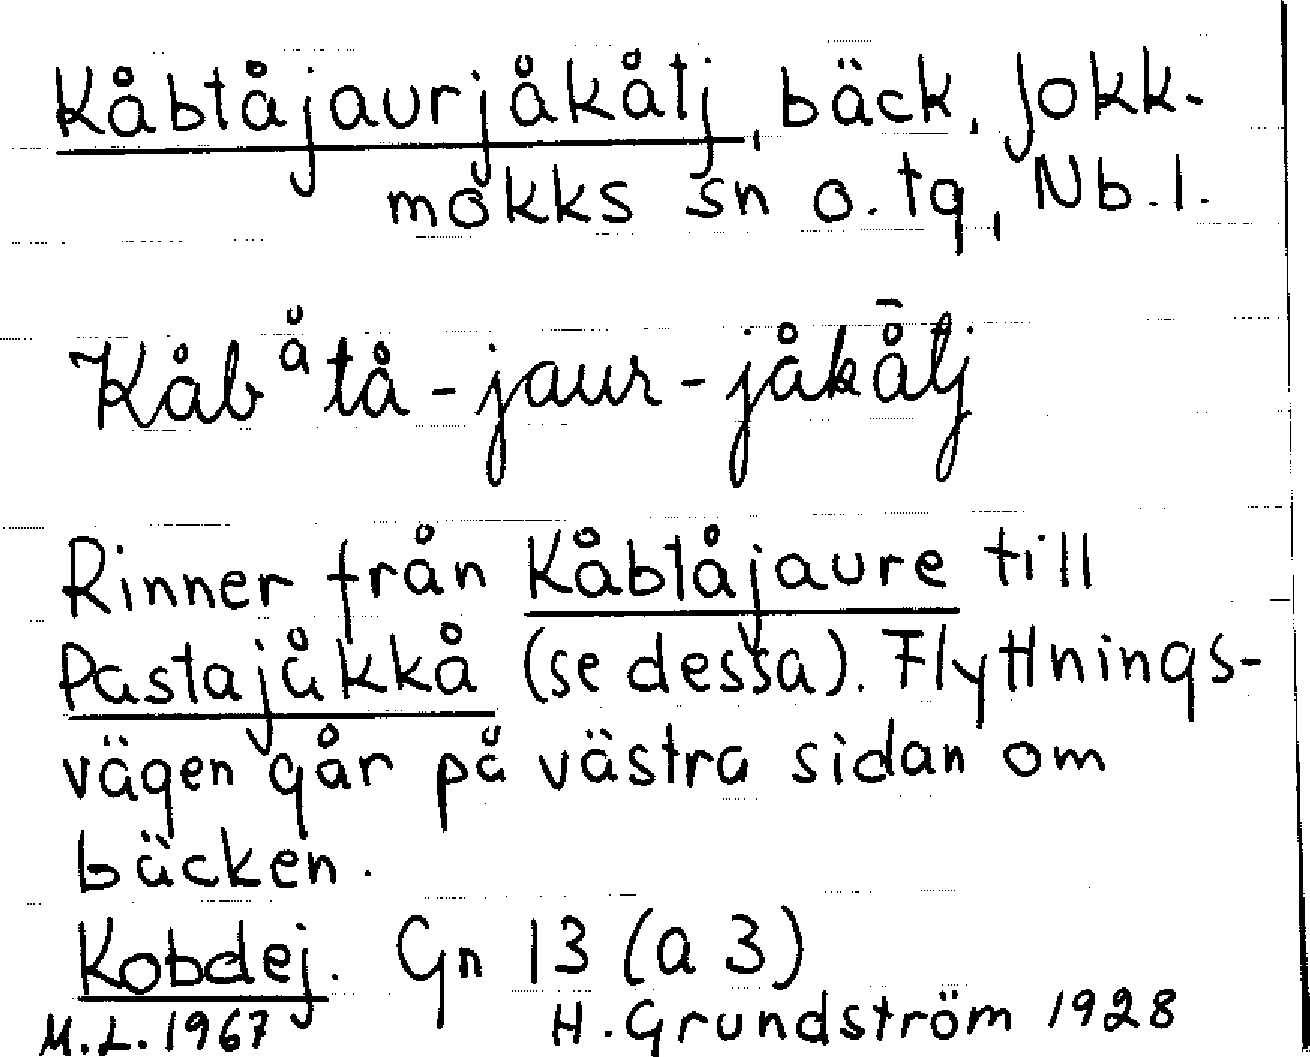 Kåbtåjaurjåkåtj, bäck, Jokk-
mokks sn o. tg, Nb. l.
Kåbåtå-jaur-jåkå̄tj
Rinner från Kåbtåjaure till
Pastajåkkå (se dessa). Flyttnings-
vägen går på västra sidan om
bäcken.
Kobdej. Gn 13 (a 3)
M.L. 1967 H. Grundström 1928